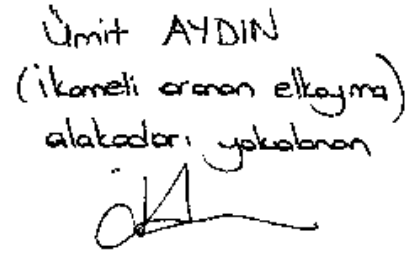 Ümit AYDIN
(ikameti aranan elkoyma)
alakadarı yakalanan